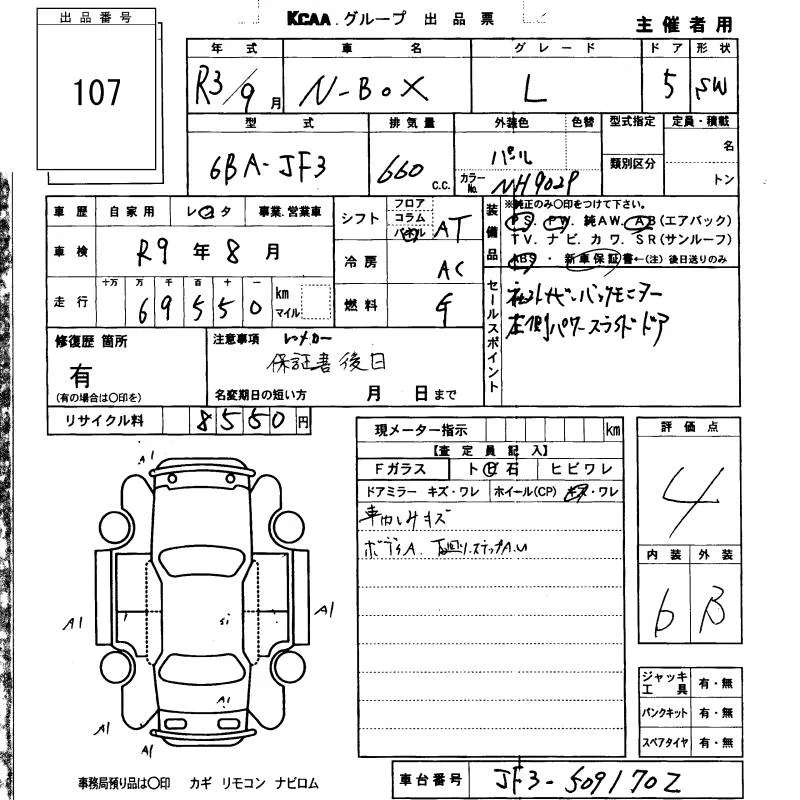 出品番号
107
KCAA グループ 出品票
主催者用
年式 車名 グレード ドア 形状
R3/9月 N-BOX L 5 SW
型式 排気量 外装色 色替 型式指定 定員・積載
6BA-JF3 660 c.c. パール 類別区分 名
カラーNo. NH902P トン
車歴 自家用 レンタ 事業、営業車
車検 R9年8月
走行 十万 万 千 百 十 一
69550 km マイル
シフト フロア コラム パネル AT
冷房 AC
燃料 G
装備品 ※純正のみ○印をつけて下さい。
PS. PW. 純AW. AB(エアバック)
TV. ナビ. カワ. SR(サンルーフ)
ABS ・ 新車保証書←(注)後日送りのみ
セールスポイント
社外ナビ・バックモニター
左側パワースライドドア
修復歴 箇所
有
(有の場合は○印を)
注意事項 レンタカー
保証書後日
名変期日の短い方 月 日まで
リサイクル料 8550円
現メーター指示 km
【査定員記入】
Fガラス トビ石 ヒビワレ
ドアミラー キズ・ワレ ホイール(CP) キズ・ワレ
車内しみキズ
ボディA. 下回り.ステップA.U
評価点
4
内装 外装
6 B
A1
A1 A1
S1
A1
A1
A1
ジャッキ工具 有・無
パンクキット 有・無
スペアタイヤ 有・無
事務局預り品は○印 カギ リモコン ナビロム
車台番号 JF3-5091702